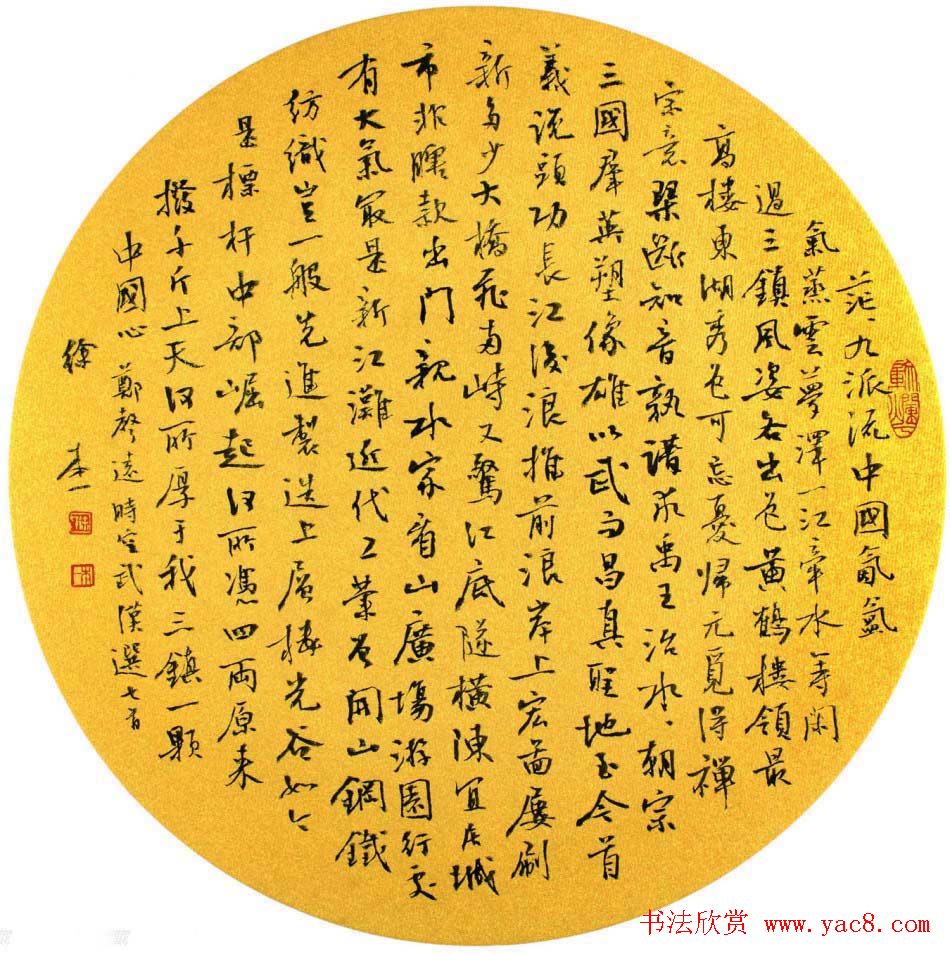 茫、九派流中國氤氳
氣蒸雲夢澤一江牽水等閑
過三鎮風姿各出色黃鶴樓領最
高樓東湖秀色可忘憂歸元覓得禪
宗意琹臺知音孰譜求禹王治水、朝宗
三國羣英塑像雄以武而昌真聖地至今首
義説頭功長江後浪推前浪岸上宏啚屢刷
新多少大橋飛南峙又驚江底隧橫陳宜居城
市非曙款出門親水家看山廣場游園行處
有大氣最是新江灘近代工業首開山鋼鐵
紡織豈一般先進製造上層樓光谷如今
是標杆中部崛起何所憑四兩原来
撥千斤上天何所厚于我三鎮一顆
中國心 鄭聲遠時空武漢選七首
徐
本一
书法欣赏 www.yac8.com